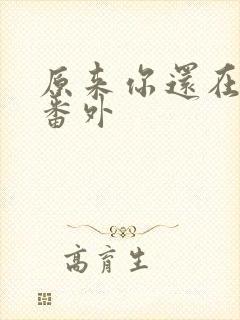 原来你還在
番外
高育生